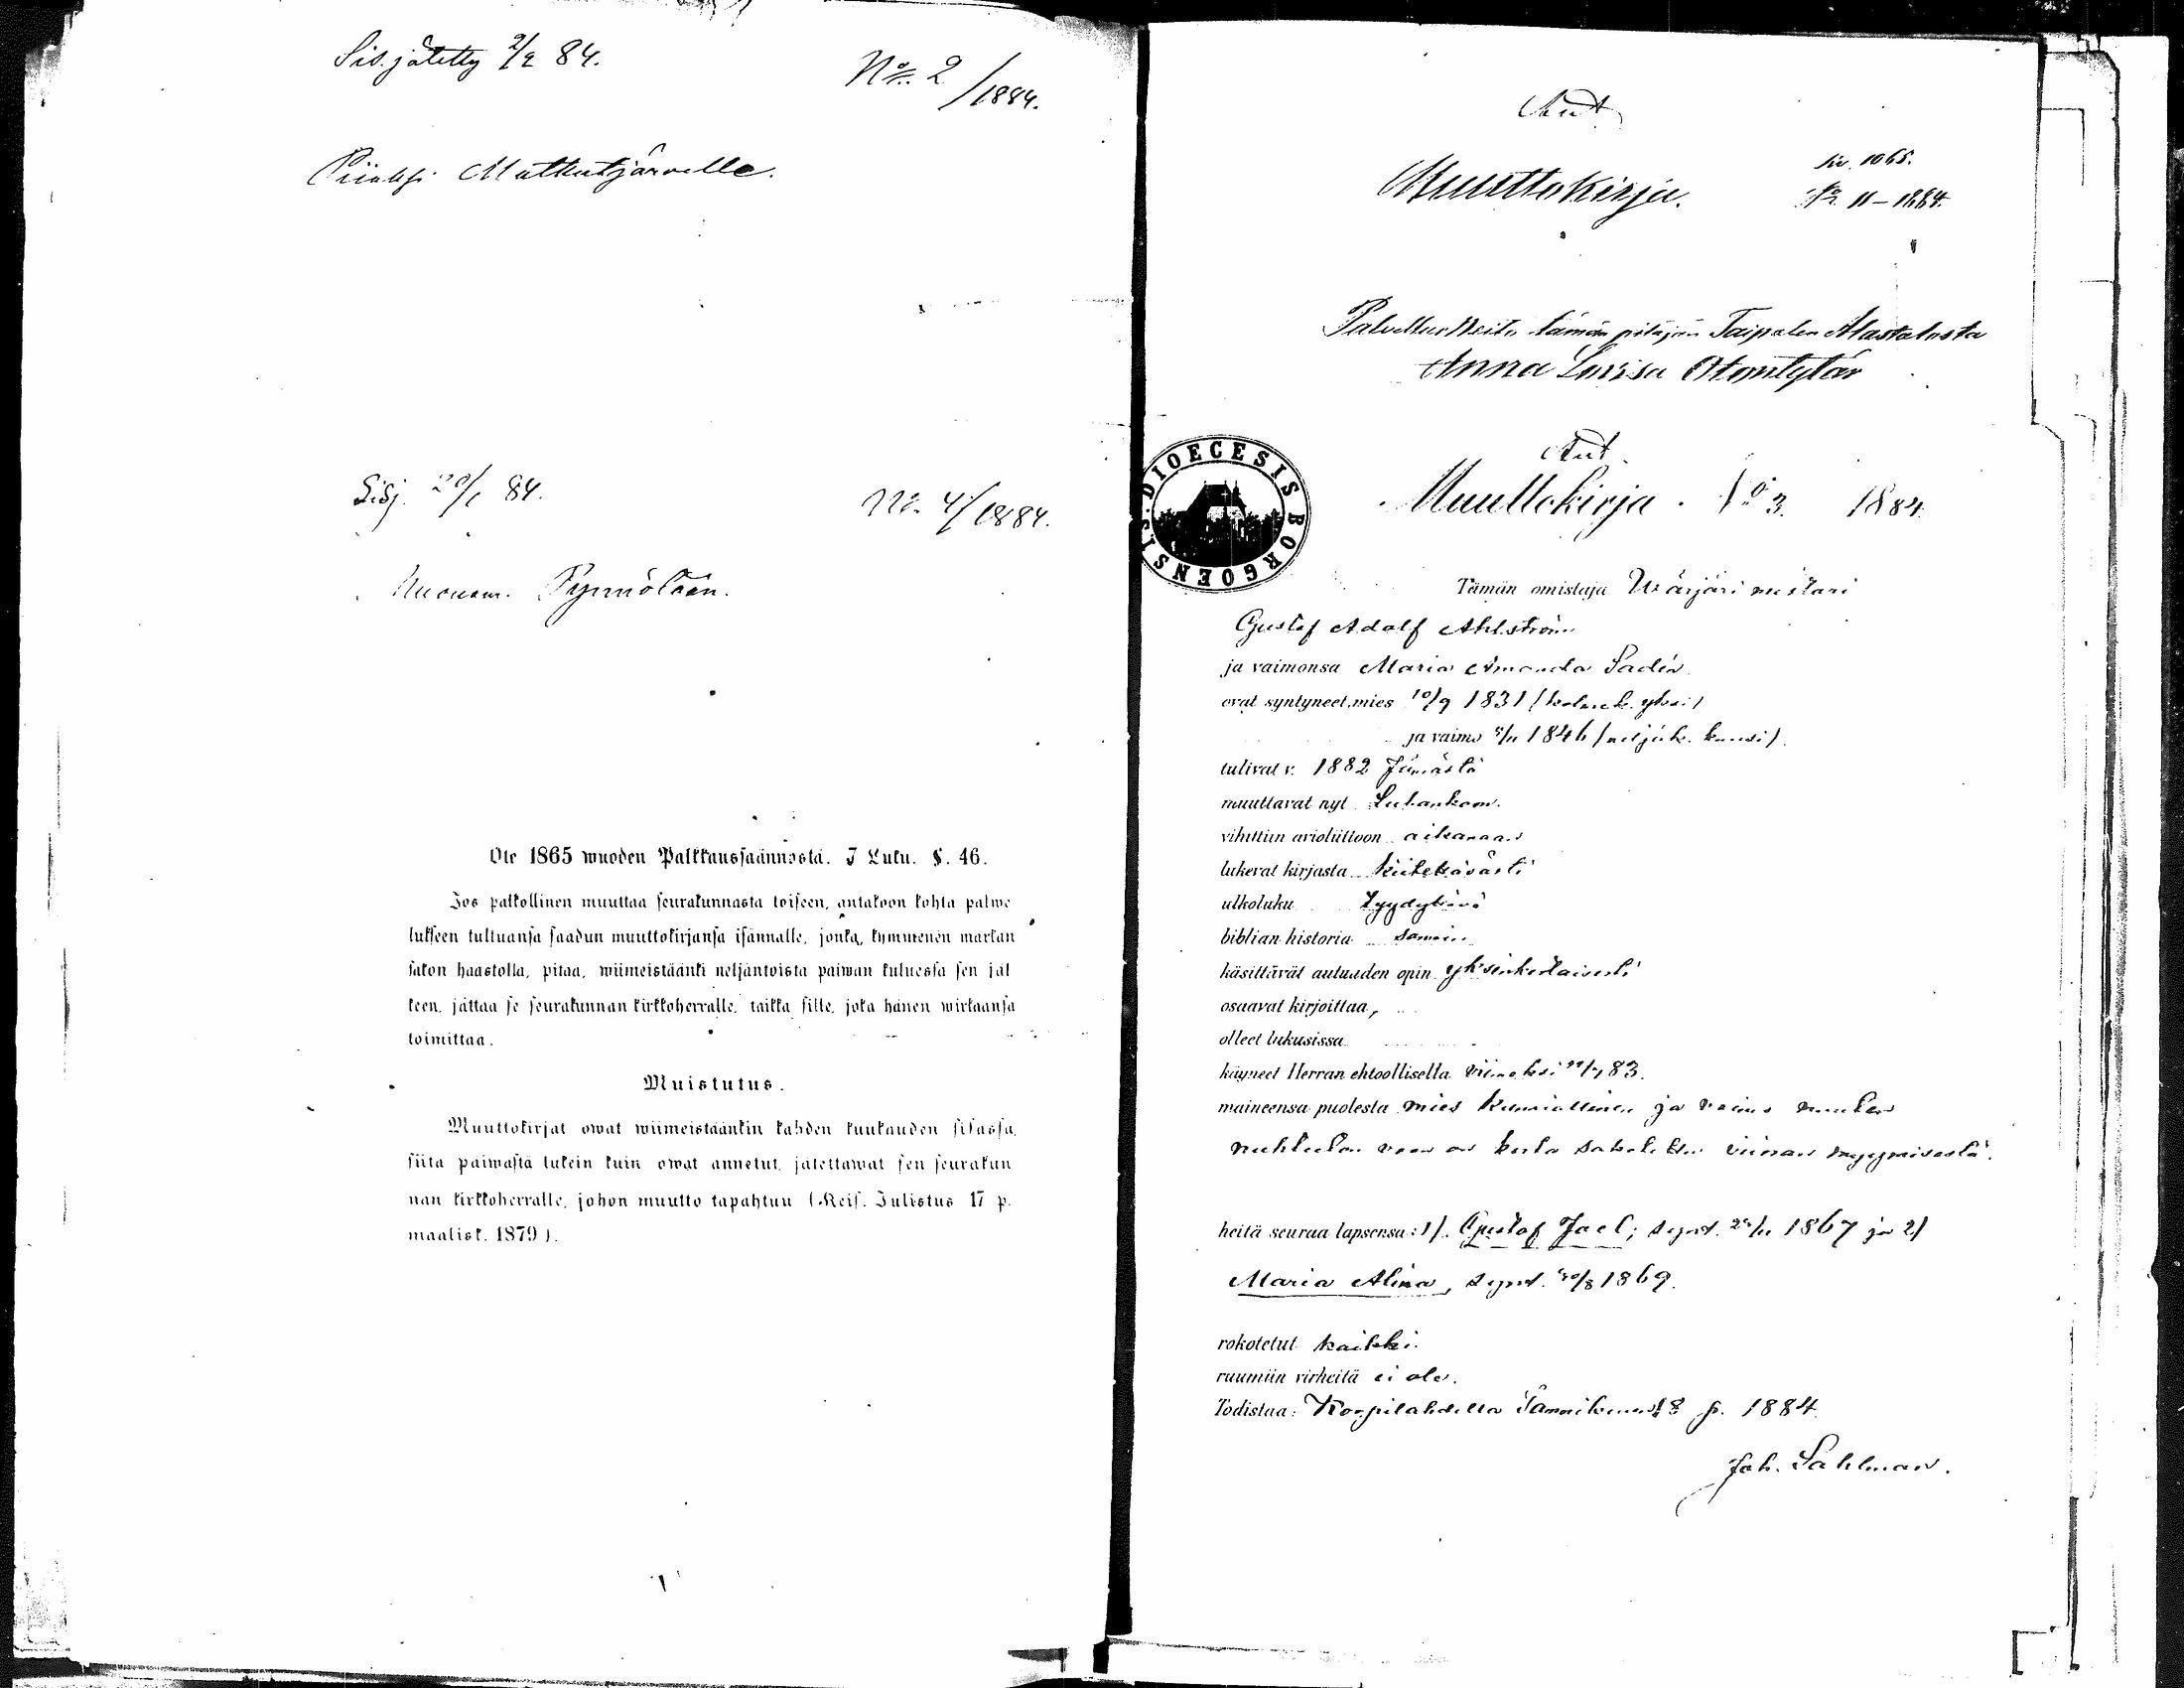 Sis.jätetty 2/2 84.
No 2/1884.
Piiaksi Matkutjärvelle.
Sisj. 20/1 84.
No. 4/1884.
Pynnölään.
Ote 1865 wuoden Palkkaussäännöstä. I Luku. §. 46.
Jos palkollinen muuttaa seurakunnasta toiseen, antakoon kohta palwe
lukseen tultuansa saadun muuttokirjansa isännälle, jonka, kymmenen markan
sakon haastolla, pitää, wiimeistäänki neljäntoista päiwän kuluessa sen jäl
keen, jättää se seurakunnan kirkkoherralle, taikka sille, joka hänen wirkaansa
toimittaa.
Muistutus.
Muuttokirjat owat wiimeistäänkin kahden kuukauden sisässä,
siitä päiwästä lukein kuin owat annetut, jätettäwät sen seurakun
nan kirkkoherralle, johon muutto tapahtuu (Keis. Julistus 17 p.
maalisk. 1879).
Muuttokirja.
Siv. 1065.
No. 11–1884.
Palvelus Neito tämän pitäjän Taipalen Alastalosta
Anna Lovisa Ottontytär
DIOECESIS BORGOENSIS
Muuttokirja. No 3. 1884.
Tämän omistaja Wärjäri mestari
Gustaf Adolf Ahlström
ja vaimonsa Maria Amanda Sadén
ovat syntyneet, mies 10/9 1831 (kolmek. yksi)
ja vaimo 1846 (neljäk. kuusi).
tulivat v. 1882 Jämästä
muuttavat nyt Luhankaan.
vihittiin avioliittoon aikanaan
lukevat kirjasta kiitettävästi
ulkoluku tyydyttävä
biblian historia samoin
käsittävät autuuden opin yksinkertaisesti
osaavat kirjoittaa,
olleet lukusissa
käyneet Herran ehtoollisella viimeksi 83.
maineensa puolesta mies kunniallinen ja vaimo muuten
nuhteeton vaan on kerta sakotettu viinan myymisestä.
heitä seuraa lapsensa: 1). Gustaf Jael; synt. 1867 ja 2)
Maria Alina, synt. 30/8 1869.
rokotetut kaikki.
ruumiin virheitä ei ole.
Todistaa: Korpilahdella Tammikuun 18 p. 1884.
Joh. Sahlman.